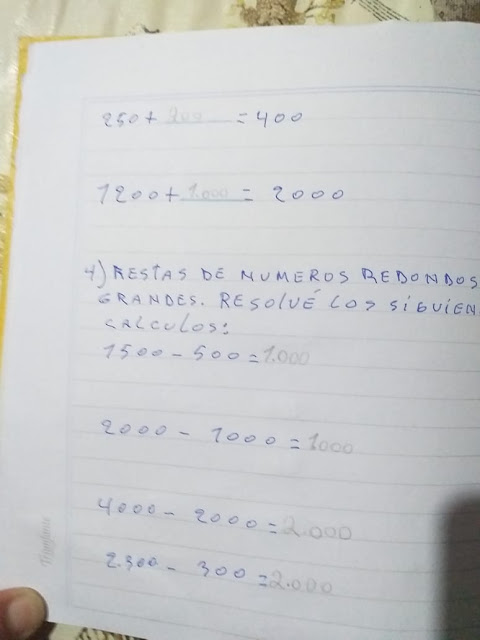 250 + 200 = 400
1200 + 1.000 = 2000
4) RESTAS DE NUMEROS REDONDOS
GRANDES. RESOLVÉ LOS SIGUIEN
CALCULOS:
1500 - 500 = 1.000
2000 - 1000 = 1000
4000 - 2000 = 2.000
2.300 - 300 = 2.000